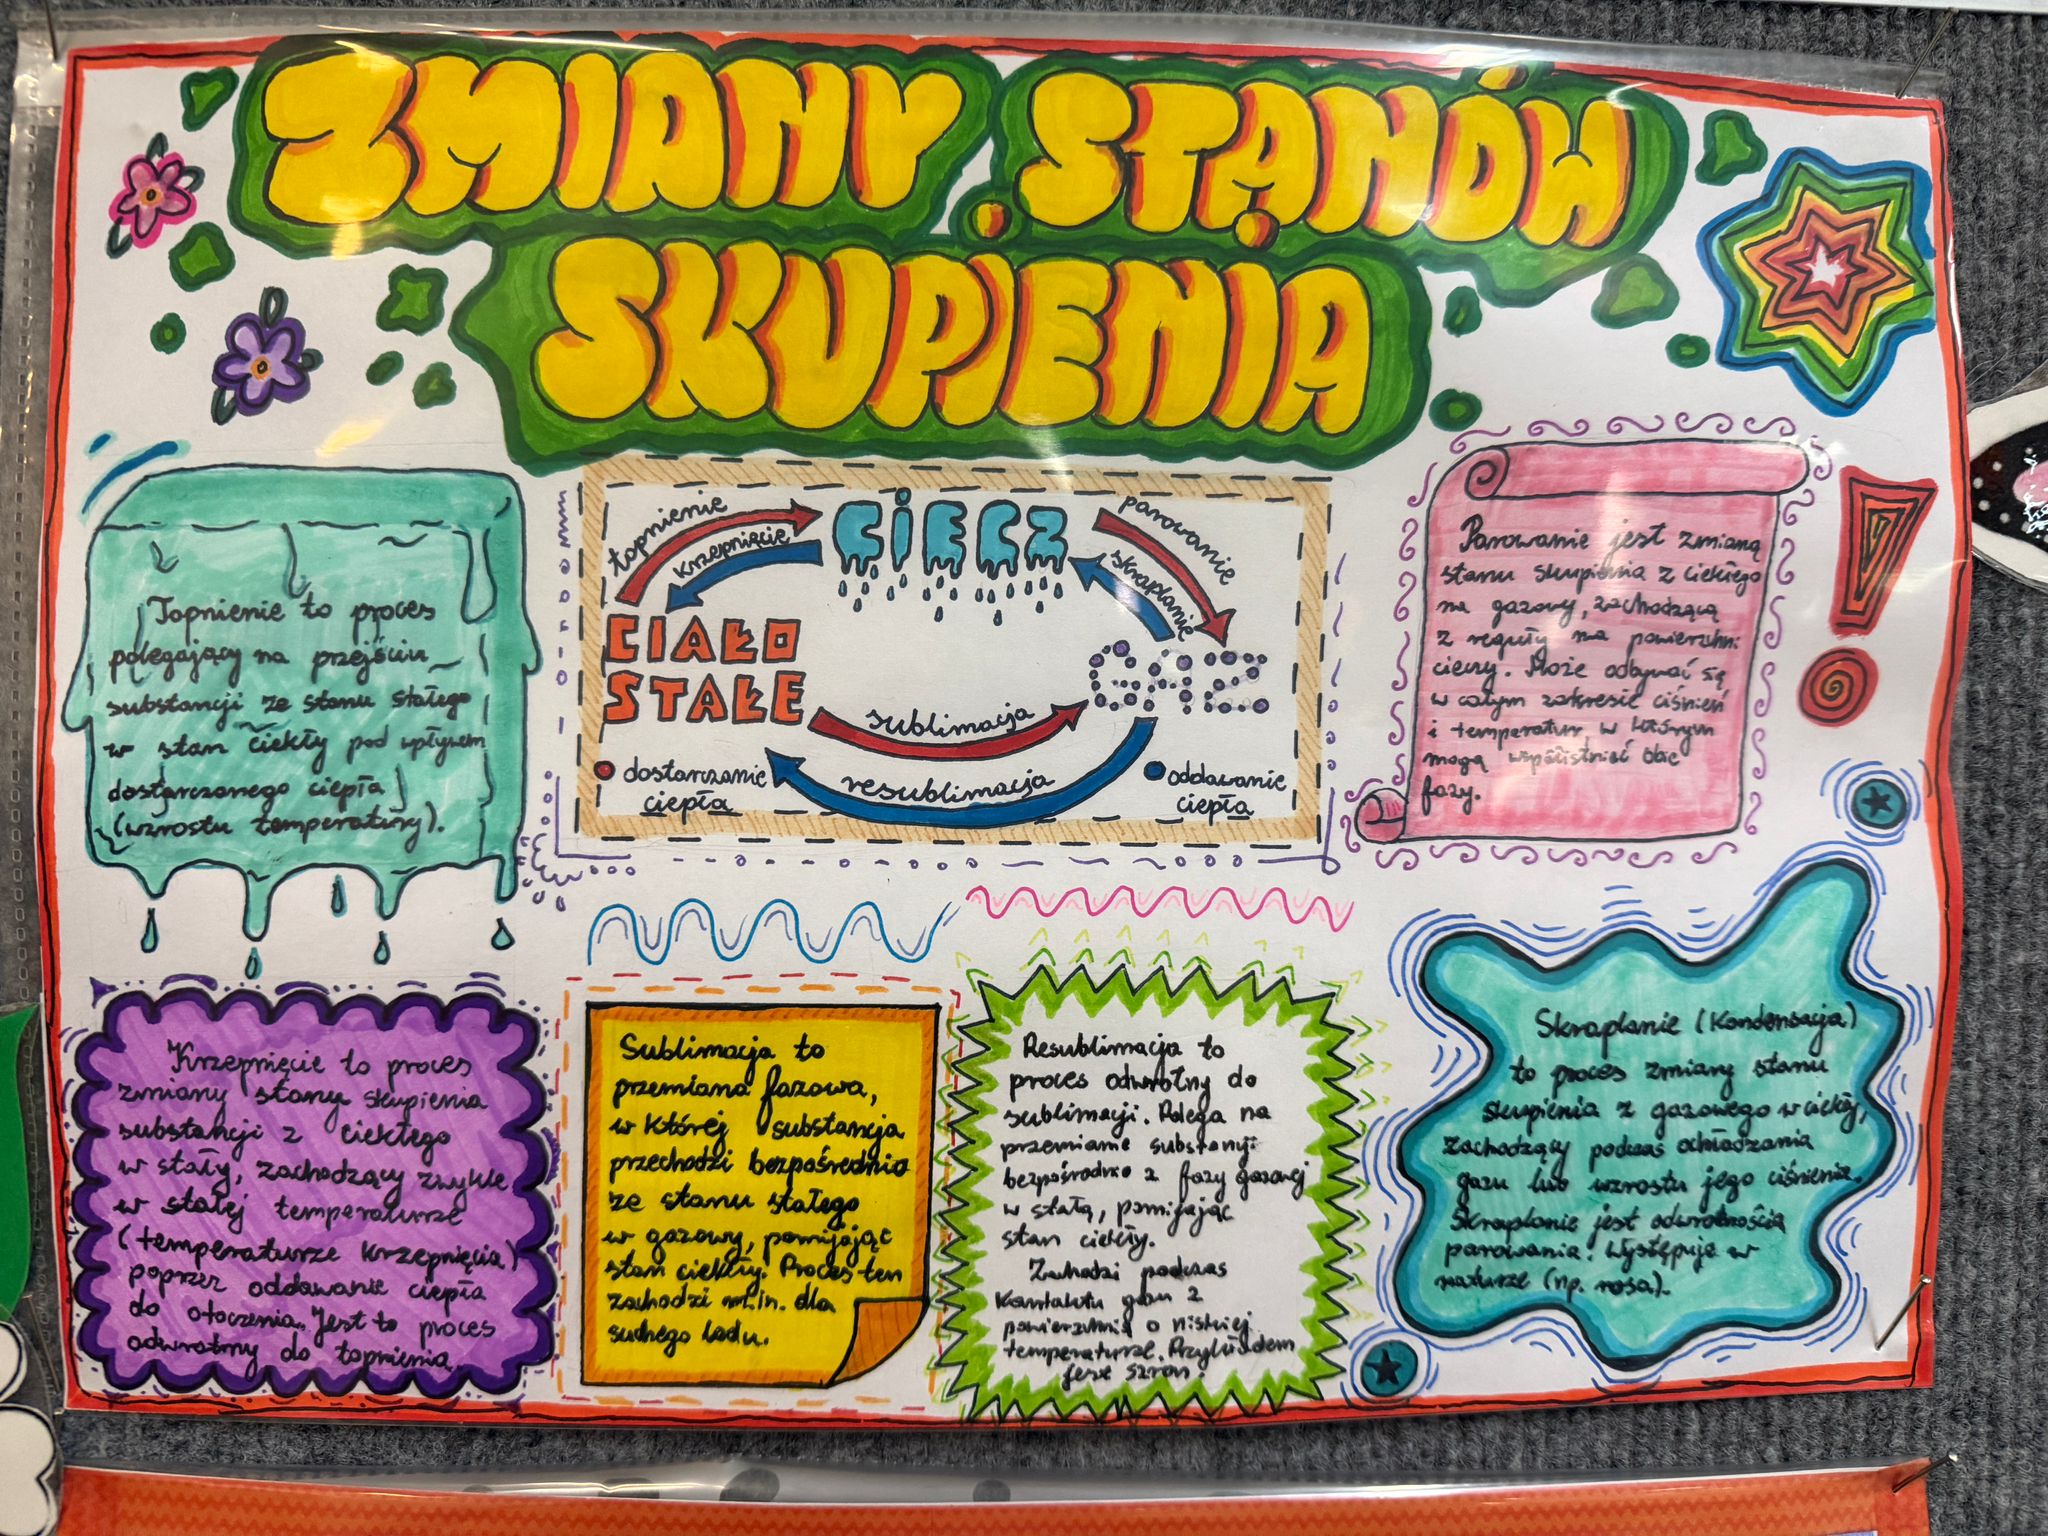 ZMIANY STANÓW
SKUPIENIA
Topnienie to proces
polegający na przejściu
substancji ze stanu stałego
w stan ciekły pod wpływem
dostarczonego ciepła
(wzrostu temperatury).
topnienie
krzepnięcie
CIECZ
parowanie
skraplanie
CIAŁO
STAŁE
GAZ
sublimacja
resublimacja
dostarczanie
ciepła
oddawanie
ciepła
Parowanie jest zmianą
stanu skupienia z ciekłego
na gazowy, zachodzącą
z reguły na powierzchni
cieczy. Może odbywać się
w całym zakresie ciśnień
i temperatur, w którym
mogą współistnieć obie
fazy.
Krzepnięcie to proces
zmiany stanu skupienia
substancji z ciekłego
w stały, zachodzący zwykle
w stałej temperaturze
(temperaturze krzepnięcia)
poprzez oddawanie ciepła
do otoczenia. Jest to proces
odwrotny do topnienia.
Sublimacja to
przemiana fazowa,
w której substancja
przechodzi bezpośrednio
ze stanu stałego
w gazowy, pomijając
stan ciekły. Proces ten
zachodzi m.in. dla
suchego lodu.
Resublimacja to
proces odwrotny do
sublimacji. Polega na
przemianie substancji
bezpośrednio z fazy gazowej
w stałą, pomijając
stan ciekły.
Zachodzi podczas
kontaktu gazu z
powierzchnią o niskiej
temperaturze. Przykładem
jest szron.
Skraplanie (kondensacja)
to proces zmiany stanu
skupienia z gazowego w ciekły,
zachodzący podczas ochładzania
gazu lub wzrostu jego ciśnienia.
Skraplanie jest odwrotnością
parowania. Występuje w
naturze (np. rosa).